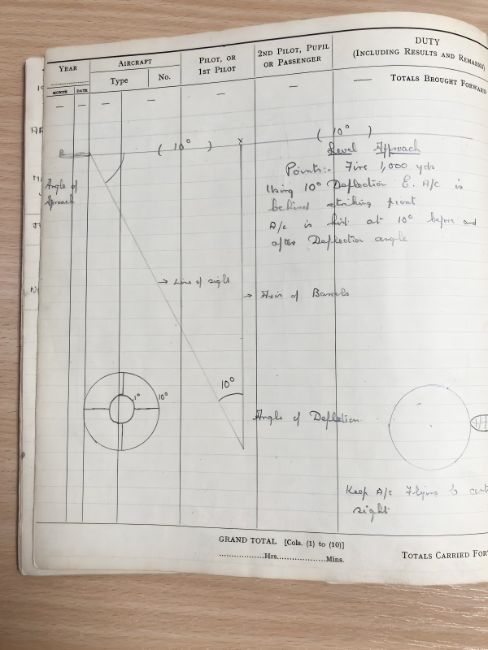 YEAR
AIRCRAFT
PILOT, OR
1ST PILOT
2ND PILOT, PUPIL
OR PASSENGER
DUTY
(INCLUDING RESULTS AND REMARKS)
MONTH
DATE
Type
No.
— TOTALS BROUGHT FORWARD
( 10° )
( 10° )
Level Approach
Points:- Fire 1,000 yds
Using 10° Deflection E. A/C is
behind striking point
A/c is hit at 10° before and
after Deflection angle
Angle of
Aproach
→ Line of sight
→ Axis of Barrels
10°
1°
10°
Angle of Deflection
Keep A/c Flying to
sight
GRAND TOTAL [Cols. (1) to (10)]
Hrs. Mins.
TOTALS CARRIED FOR